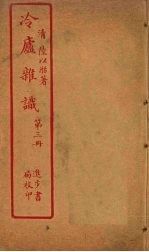 清 陸以湉著
冷廬雜識
第三冊
進步書
局校印